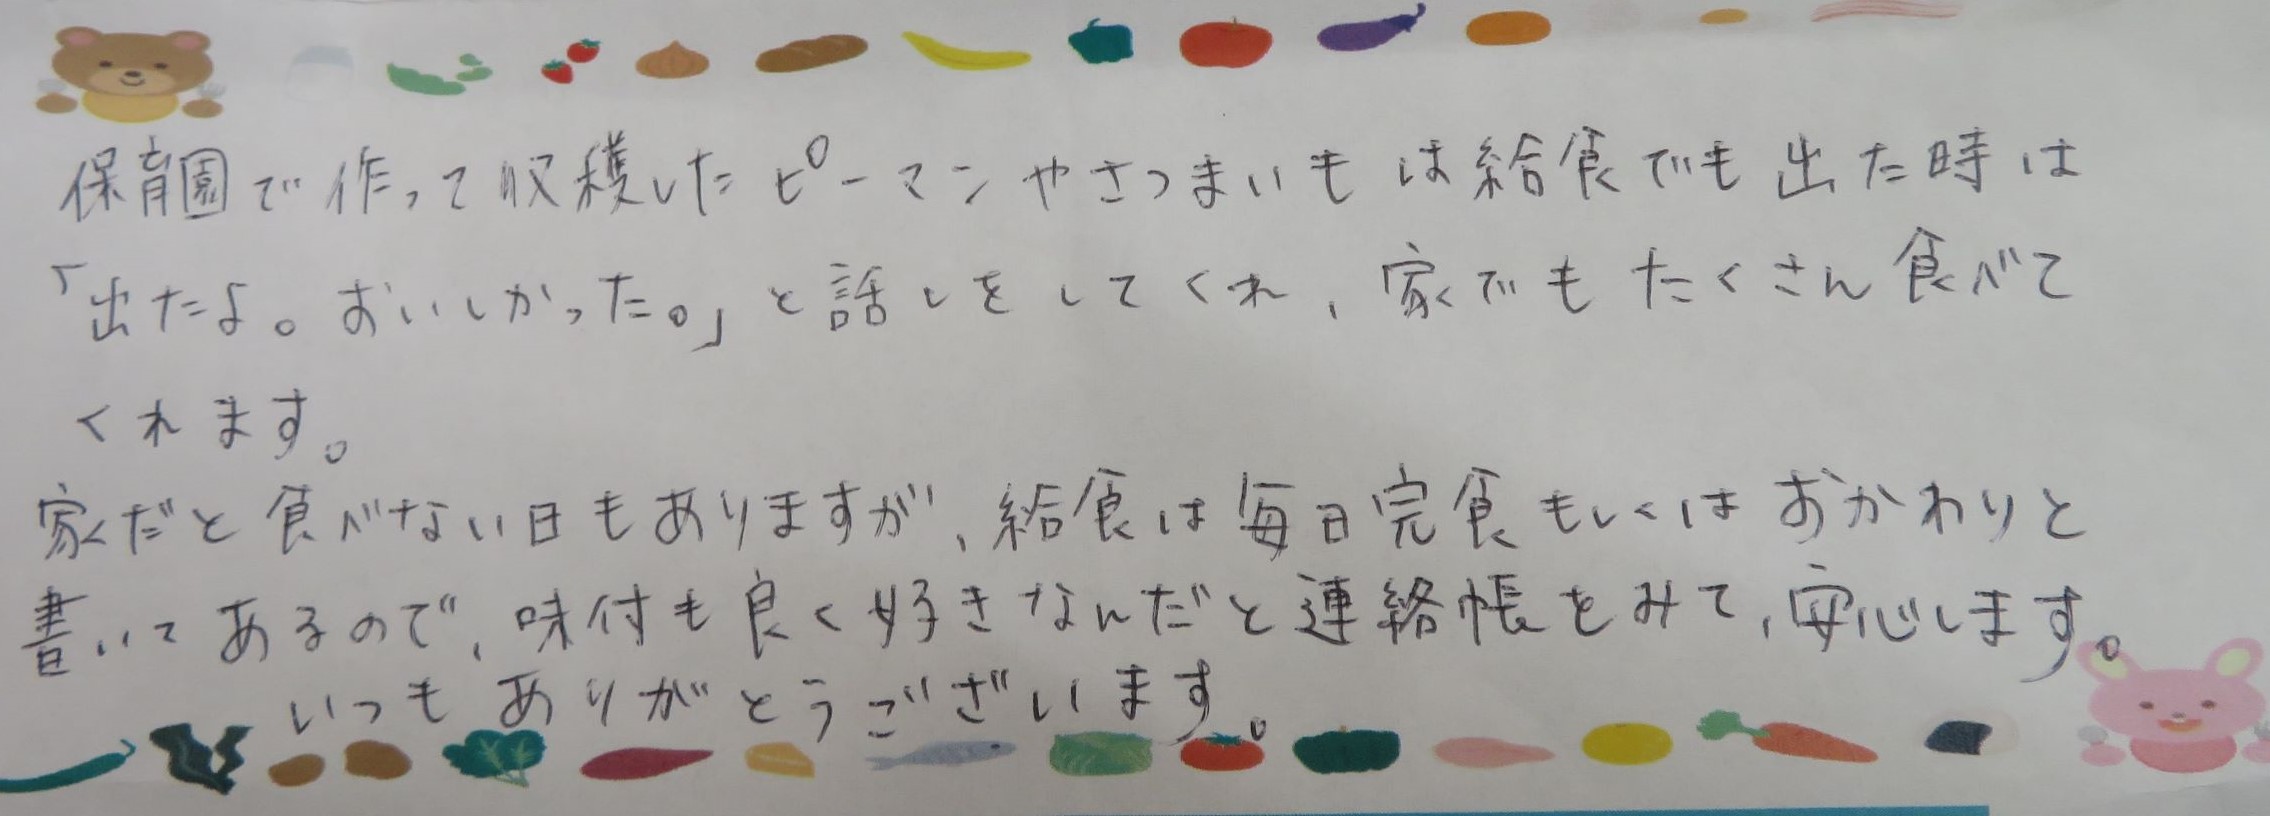 保育園で作って収穫したピーマンやさつまいもは給食でも出た時は
「出たよ。おいしかった。」と話しをしてくれ、家でもたくさん食べて
くれます。
家だと食べない日もありますが、給食は毎日完食もしくはおかわりと
書いてあるので、味付も良く好きなんだと連絡帳をみて、安心します。
いつもありがとうございます。